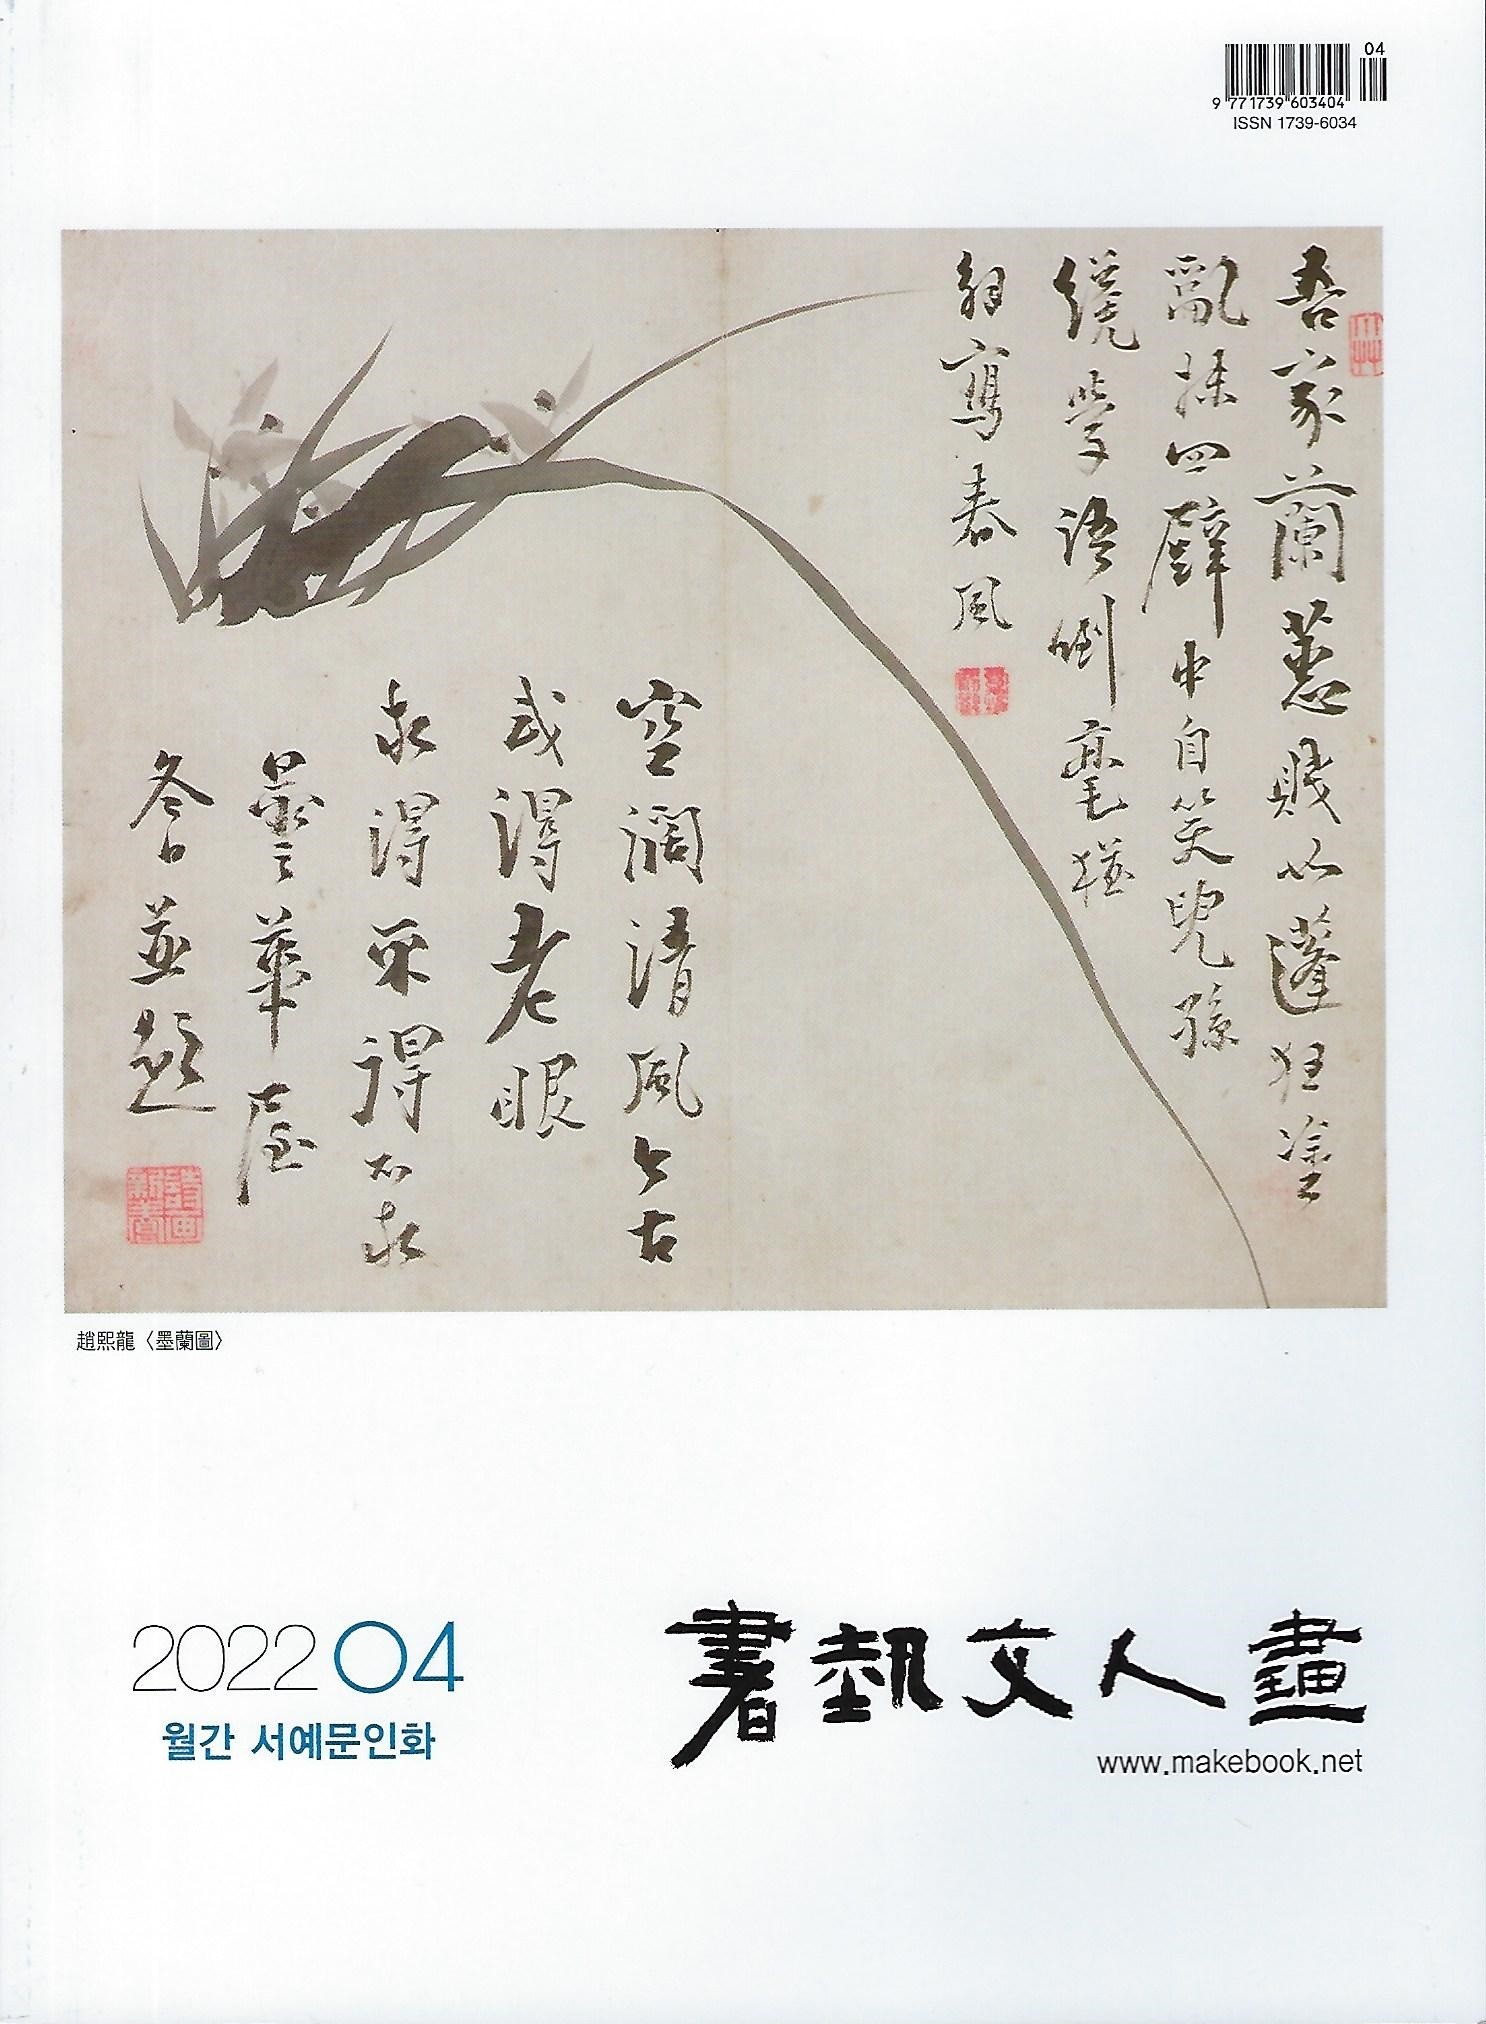 04
9 771739 603404
ISSN 1739-6034
吾家蘭蕙賤如蓬狂塗
亂抹四壁中自笑兒孫
纔學語倒毫猶
解寫春風
空濶清風古
或得老眼
求得得不求
曇華屋
並題
趙熙龍〈墨蘭圖〉
2022 04
월간 서예문인화
書藝文人畫
www.makebook.net